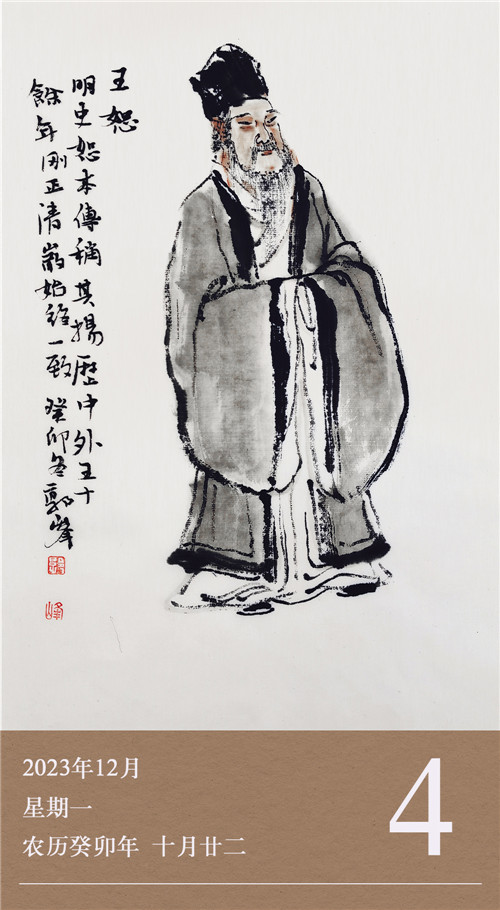 王恕
明史恕本傳稱其揚歷中外五十
餘年剛正清嚴始終一致 癸卯冬郭峰
峰
2023年12月
星期一
农历癸卯年 十月廿二
4